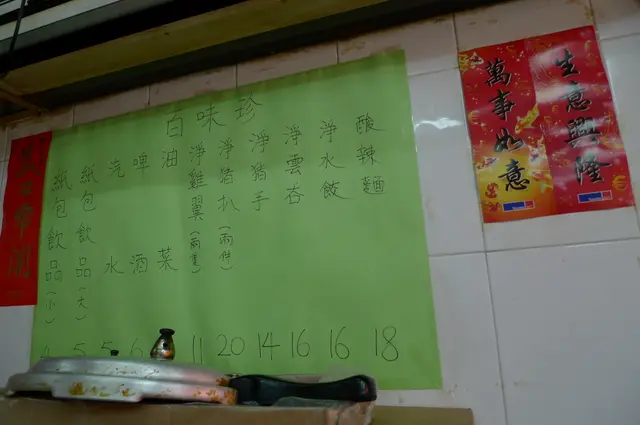 生意興隆
萬事如意
白味珍
酸辣麵 18
淨水餃 16
淨雲吞 16
淨豬手 14
淨豬扒(兩件) 20
淨雞翼(兩隻) 11
油菜
啤酒 6
汽水 5
紙包飲品(大) 5
紙包飲品(小) 4